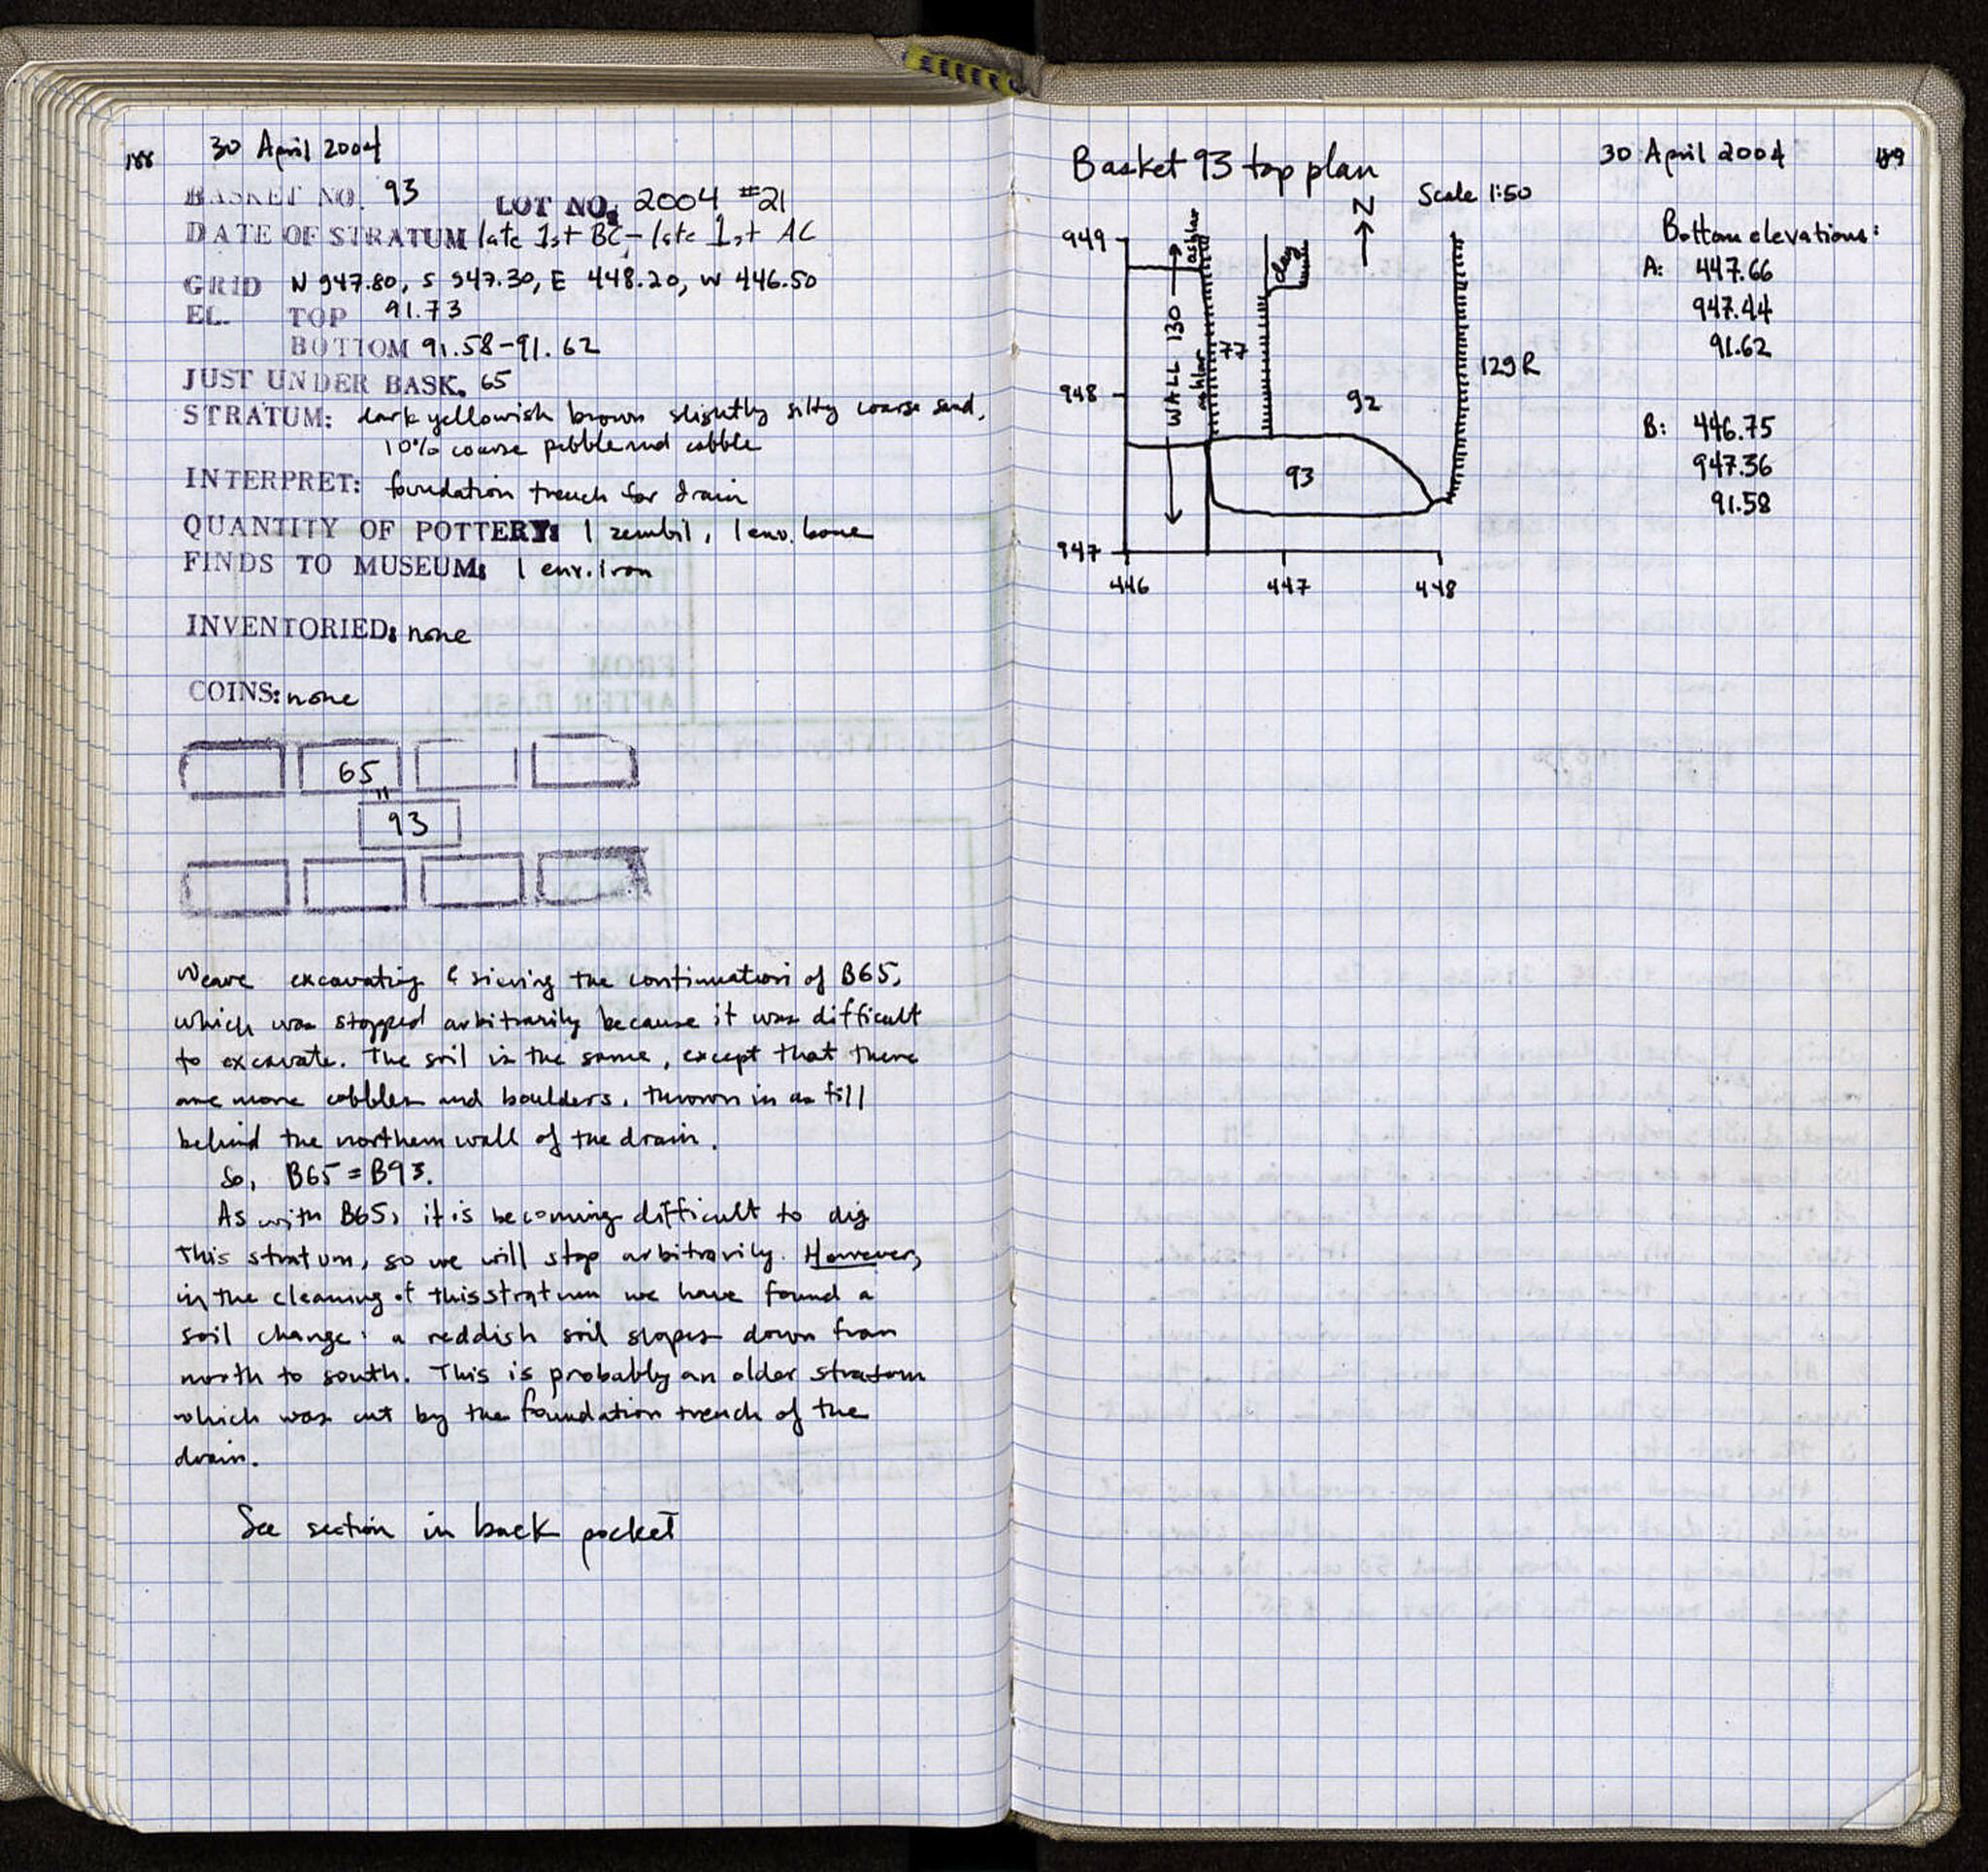 188
30 April 2004
BASKET NO. 93 LOT NO. 2004 #21
DATE OF STRATUM late 1st BC - late 1st AC
GRID N 947.80, S 947.30, E 448.20, W 446.50
EL. TOP 91.73
BOTTOM 91.58-91.62
JUST UNDER BASK. 65
STRATUM: dark yellowish brown slightly silty coarse sand,
10% coarse pebble and cobble
INTERPRET: foundation trench for drain
QUANTITY OF POTTERY: 1 zembil, 1 env. bone
FINDS TO MUSEUM: 1 env. iron
INVENTORIED: none
COINS: none
65
"
93
We are excavating & sieving the continuation of B65,
which was stopped arbitrarily because it was difficult
to excavate. The soil is the same, except that there
are more cobbles and boulders, thrown in as fill
behind the northern wall of the drain.
So, B65 = B93.
As with B65, it is becoming difficult to dig
this stratum, so we will stop arbitrarily. However,
in the cleaning of this stratum we have found a
soil change: a reddish soil slopes down from
north to south. This is probably an older stratum
which was cut by the foundation trench of the
drain.
See section in back pocket
Basket 93 top plan
30 April 2004
189
Scale 1:50
N
949
948
947
446
447
448
ashlar
WALL 130
ashlar
77
clay
92
93
129R
Bottom elevations:
A: 447.66
947.44
91.62
B: 446.75
947.36
91.58